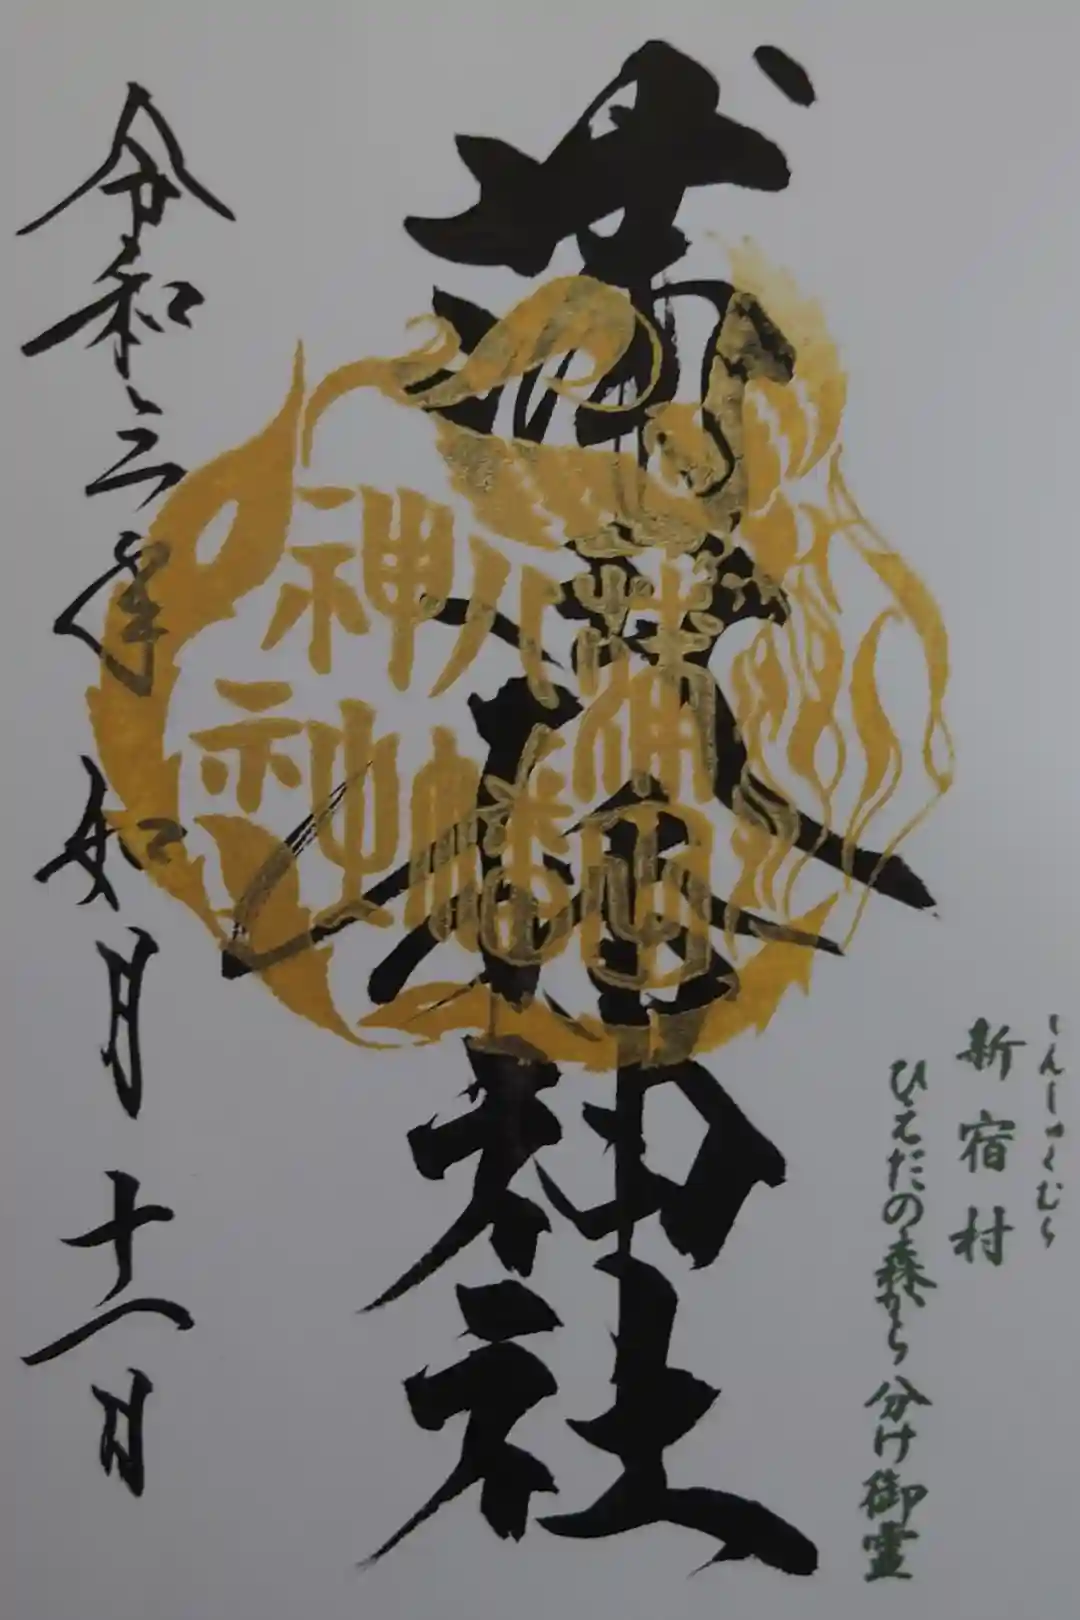 しんしゅくむら
新宿村
ひえだの森から分け御霊
蒲田八幡神社
蒲田
八幡
神社
令和三年如月十一日